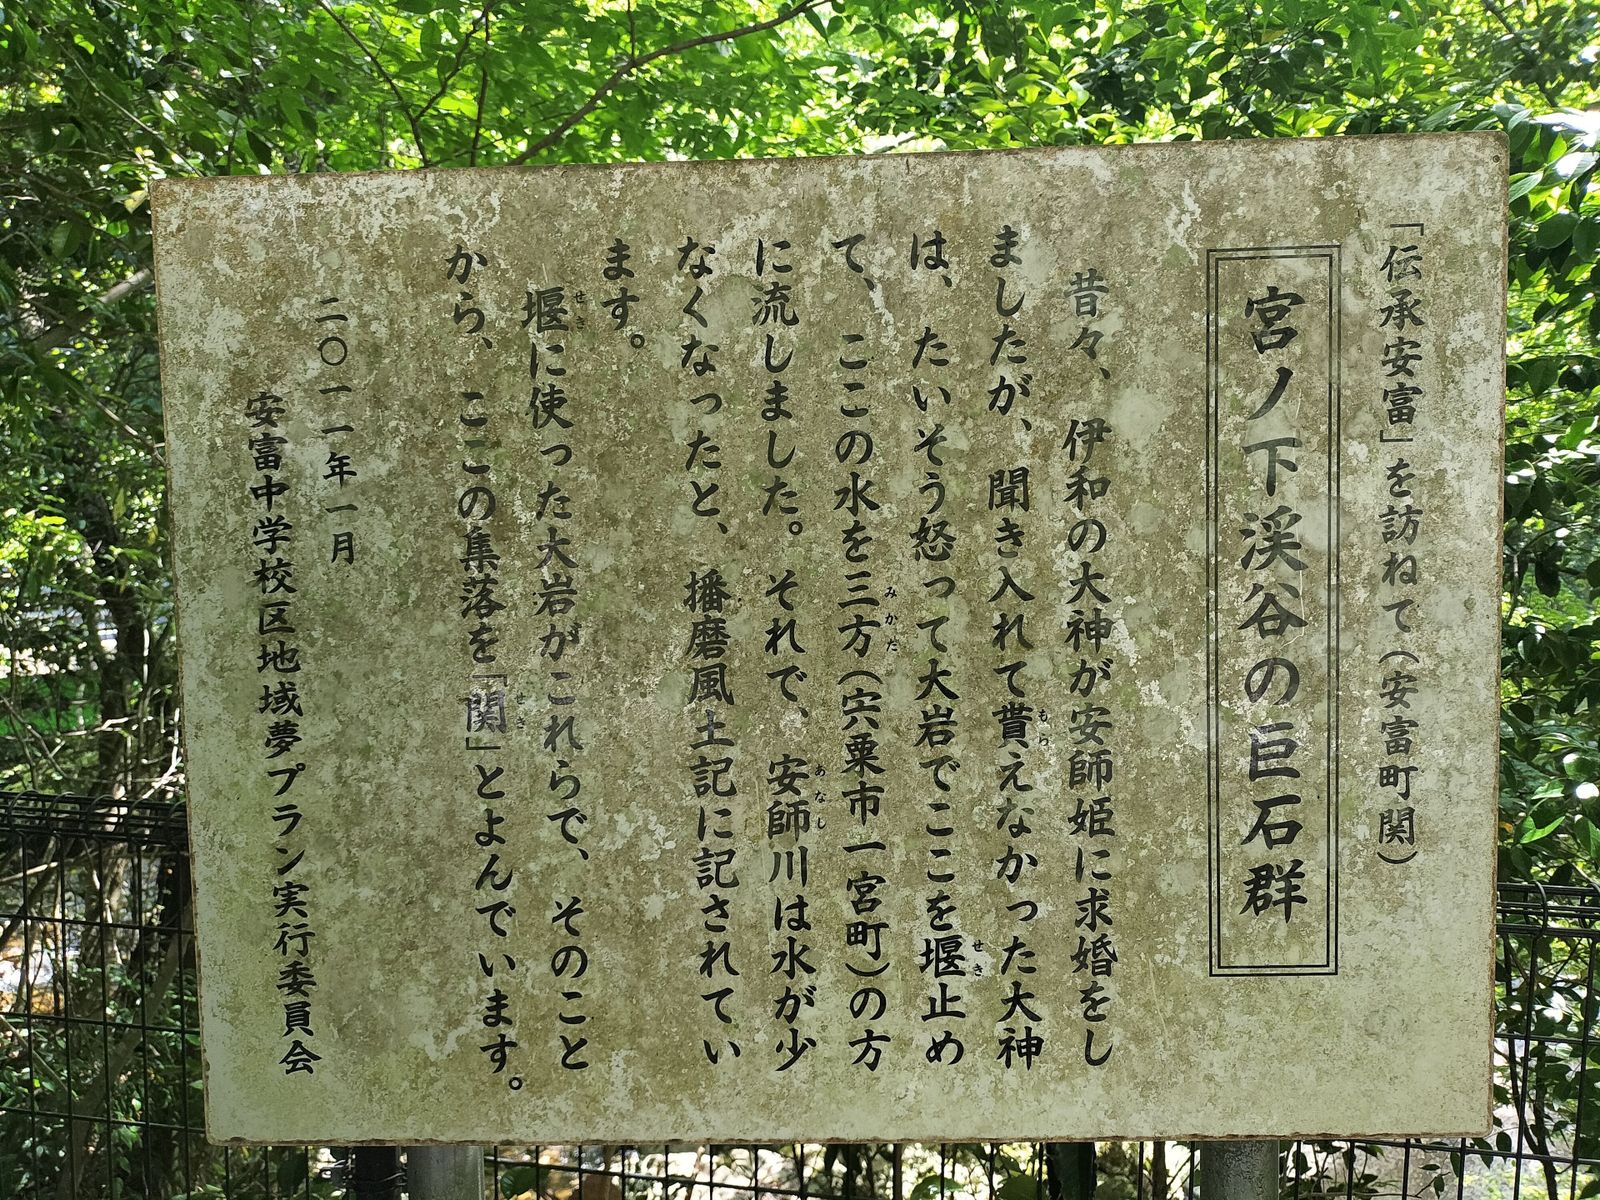 「伝承安富」を訪ねて（安富町関）
宮ノ下渓谷の巨石群
昔々、伊和の大神が安師姫に求婚をし
ましたが、聞き入れて貰えなかった大神
は、たいそう怒って大岩でここを堰止め
て、ここの水を三方（宍粟市一宮町）の方
に流しました。それで、安師川は水が少
なくなったと、播磨風土記に記されてい
ます。
堰に使った大岩がこれらで、そのこと
から、ここの集落を「関」とよんでいます。
二〇一一年一月
安富中学校区地域夢プラン実行委員会